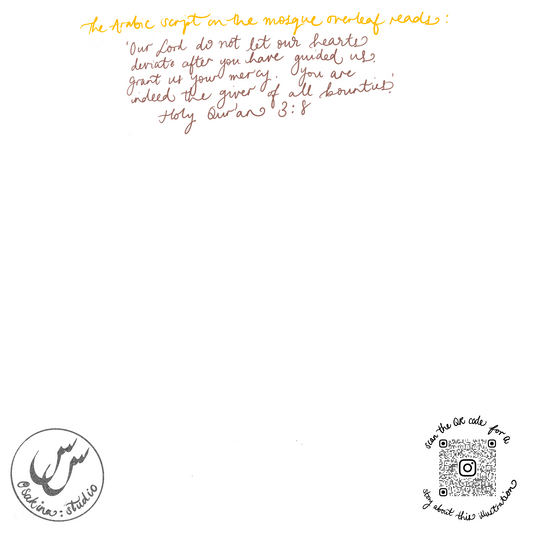 The Arabic script on the mosque overleaf reads:
'Our Lord do not let our hearts
deviate after you have guided us.
grant us your mercy. You are
indeed the giver of all bounties.'
Holy Qur'an 3:8
scan the QR code for a
story about this illustration
س س
@sakina.studio